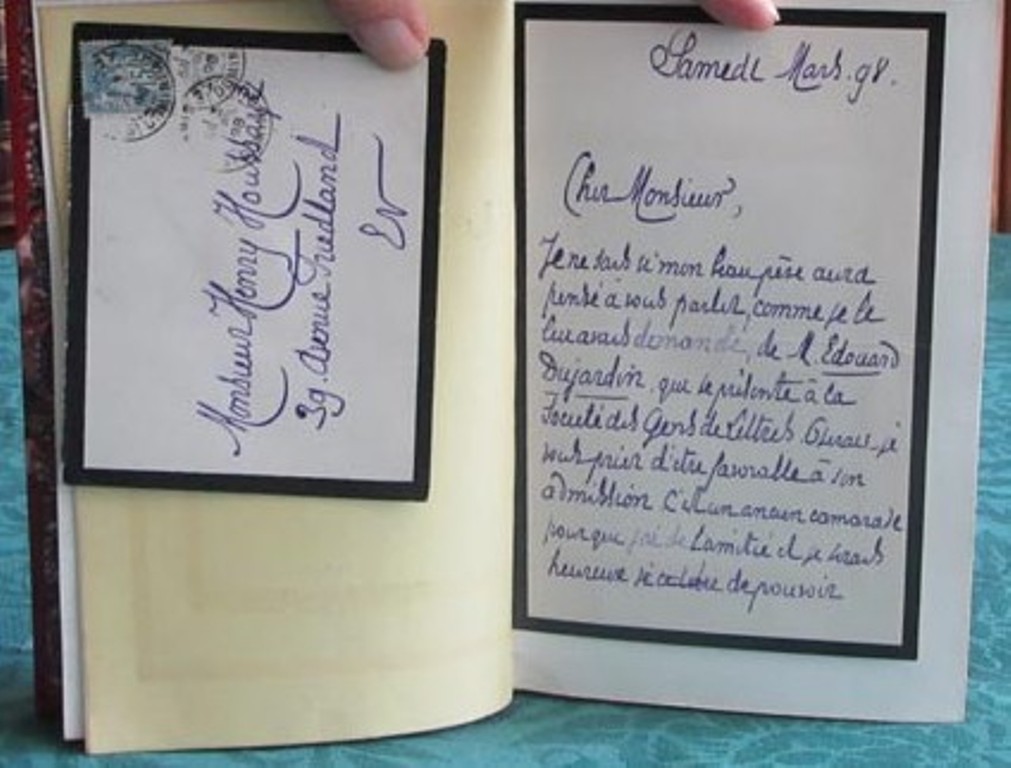 Monsieur Henry Houssaye
39. Avenue Friedland
EV
Samedi Mars. 98.
Cher Monsieur,
Je ne sais si mon beau père aura
pensé à vous parler, comme je le
lui avais demandé, de M. Edouard
Dujardin, qui se présente à la
Société des Gens de Lettres. Oserais-je
vous prier d'être favorable à son
admission C'est un ancien camarade
pour qui j'ai de l'amitié et je serais
heureux de pouvoir